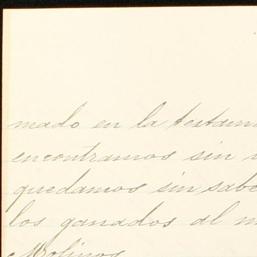 mado en la testam
encontramos sin
quedamos sin sabe
los ganados al m
Molinos